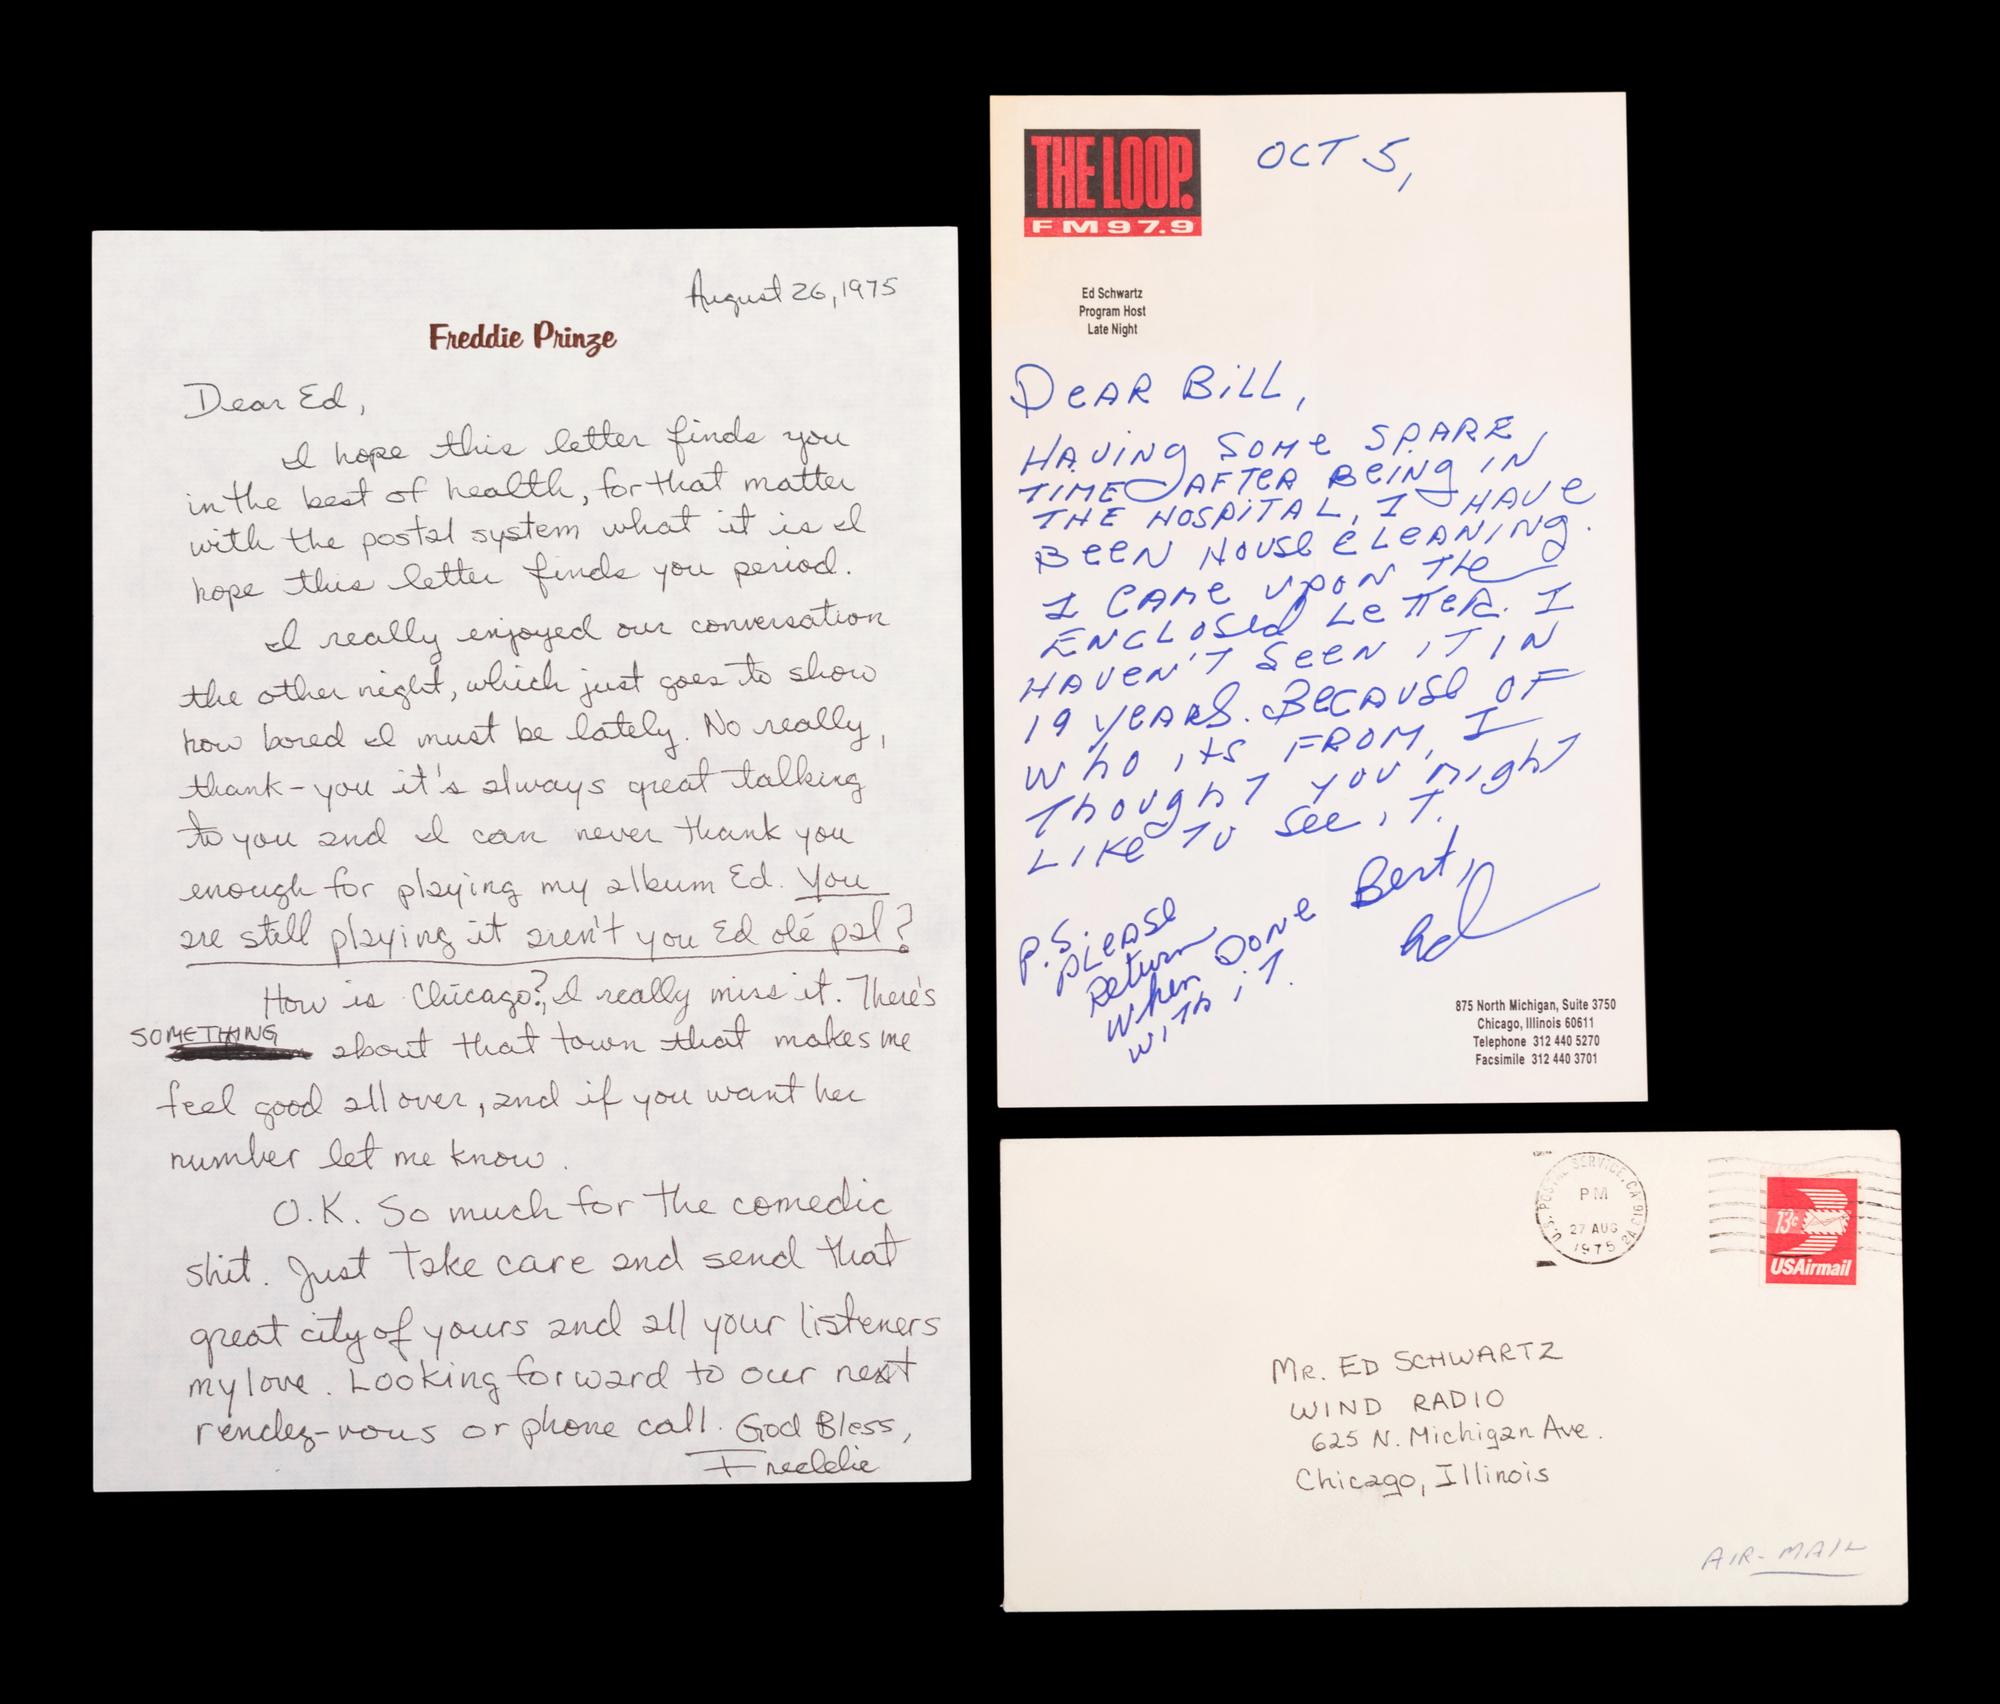 August 26, 1975
Freddie Prinze
Dear Ed,
I hope this letter finds you
in the best of health, for that matter
with the postal system what it is I
hope this letter finds you period.
I really enjoyed our conversation
the other night, which just goes to show
how bored I must be lately. No really,
thank-you it's always great talking
to you and I can never thank you
enough for playing my album Ed. You
are still playing it aren't you Ed olé pal?
How is Chicago?, I really miss it. There's
SOMETHING about that town that makes me
feel good all over, and if you want her
number let me know.
O.K. So much for the comedic
shit. Just take care and send that
great city of yours and all your listeners
my love. Looking forward to our next
rendez-vous or phone call. God Bless,
Freddie
THE LOOP.
FM 97.9
OCT 5,
Ed Schwartz
Program Host
Late Night
DeAR BiLL,
HAVING SOMe SPARE
TIME AFTeR BeING IN
THE HOSPiTAL, I HAVe
BeeN HOUSe CLeANING.
I CAMe UPON THe
ENCLOSed LeTTeR. I
HAVeN'T SeeN IT IN
19 YeARS. BeCAUSe OF
WhO ITS FROM, I
ThOUghT YOU MIghT
LIKe TO See IT.
Best,
Ed
P.S.
PLeASe
ReTurn
When DONe
WITh iT.
875 North Michigan, Suite 3750
Chicago, Illinois 60611
Telephone 312 440 5270
Facsimile 312 440 3701
U.S. POSTAL SERVICE, CA 913
PM
27 AUG
1975
2A
13c
USAirmail
MR. ED SCHWARTZ
WIND RADIO
625 N. Michigan Ave.
Chicago, Illinois
AIR-MAIL